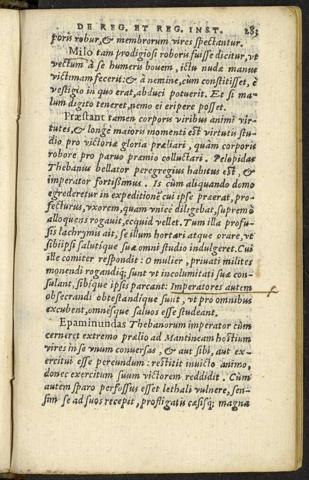 DE REG. ET REG. INST. 283
poris robur, & membrorum vires spectantur.
Milo tam prodigiosi roboris fuisse dicitur, vt
vectum à se humeris bouem, ictu nudæ manus
victimam fecerit: & à nemine, cum constitisset, è
vestigio in quo erat, abduci potuerit. Et si ma
lum digito teneret, nemo ei eripere posset.
Præstant tamen corporis viribus animi vir-
tutes, & longè maioris momenti est virtutis stu-
dio pro victoriæ gloria præliari, quam corporis
robore pro paruo præmio colluctari. Pelopidas
Thebanus bellator peregregius habitus est, &
imperator fortissimus. Is cùm aliquando domo
egrederetur in expeditionē cui ipse præerat, pro-
fecturus, vxorem, quam vnicè diligebat, supremò
alloquens rogauit, ecquid vellet. Tum illa profu-
sis lachrymis ait, se illum hortari atque orare, vt
sibiipsi salutique suæ omni studio indulgeret. Cui
ille comiter respondit: O mulier, priuati milites
monendi rogandiq; sunt vt incolumitati suæ con-
sulant, sibique ipsis parcant: Imperatores autem
obsecrandi obtestandique sunt, vt pro omnibus
excubent, omnesque saluos esse studeant.
Epaminundas Thebanorum imperator cùm
cerneret extremo prælio ad Mantineam hostium
vires in se vnum conuersas, & aut sibi, aut ex-
ercitui esse pereundum: restitit inuicto animo,
donec exercitum suum victorem reddidit. Cùm
autem sparo perfossus esset lethali vulnere, sen-
sim se ad suos recepit, profligatis cæsisq; magna